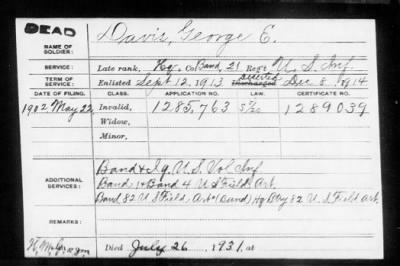 DEAD
Davis, George E.
NAME OF SOLDIER:
SERVICE: Late rank, Hq. Co Band, 21 Reg't U. S. Inf.
TERM OF SERVICE: Enlisted Sept 12, 1913 Discharged deserted Dec 8, 1914
DATE OF FILING. CLASS. APPLICATION NO. LAW. CERTIFICATE NO.
1902 May 22 Invalid, 1285,763 1289039
Widow,
Minor,
ADDITIONAL SERVICES:
Band & I. 9. U. S. Vol Inf
Band 1 & Band 4 U S Field Art.
Band 82 U S Field, Art (Band) Hq Btry 82 U. S Field Art.
REMARKS:
Died July 26, 1931, at